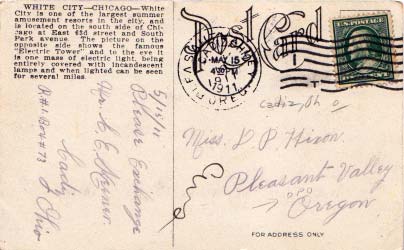 WHITE CITY—CHICAGO—White
City is one of the largest summer
amusement resorts in the city, and
is located on the south side of Chi-
cago at East 63d street and South
Park avenue. The picture on the
opposite side shows the famous
"Electric Tower" and to the eve it
is one mass of electric light, being
entirely covered with incandescent
lamps and when lighted can be seen
for several miles.
Post Card
MAY 15
PM
1911
U.S. POSTAGE
5/15/11
Please Exchange
Mr. C E Mesmer.
Cadiz
Ohio
R#1 Box #73
Cadiz, Oh o
Miss. D. P. Nixon.
Pleasant Valley
Oregon
FOR ADDRESS ONLY